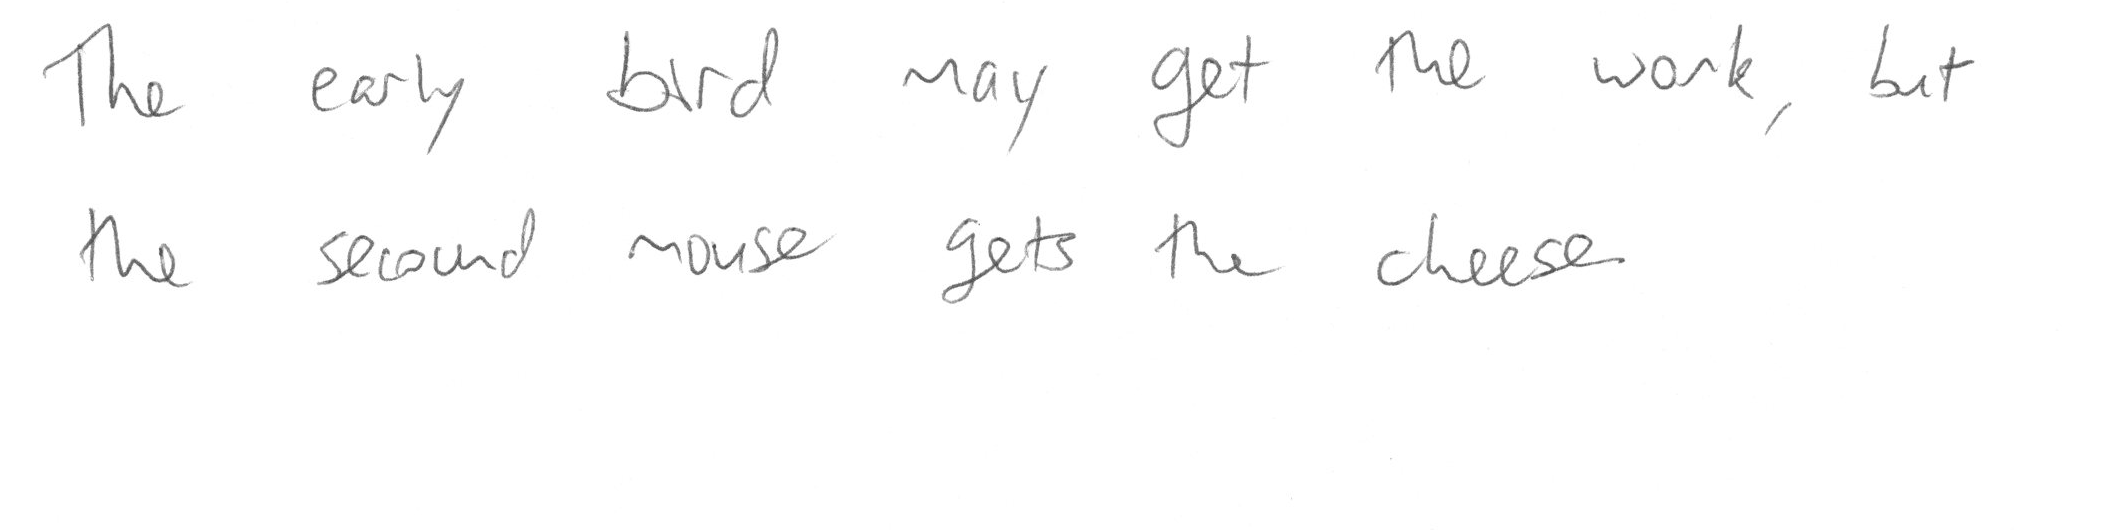 The early bird may get the work, but
the secound mouse gets the cheese